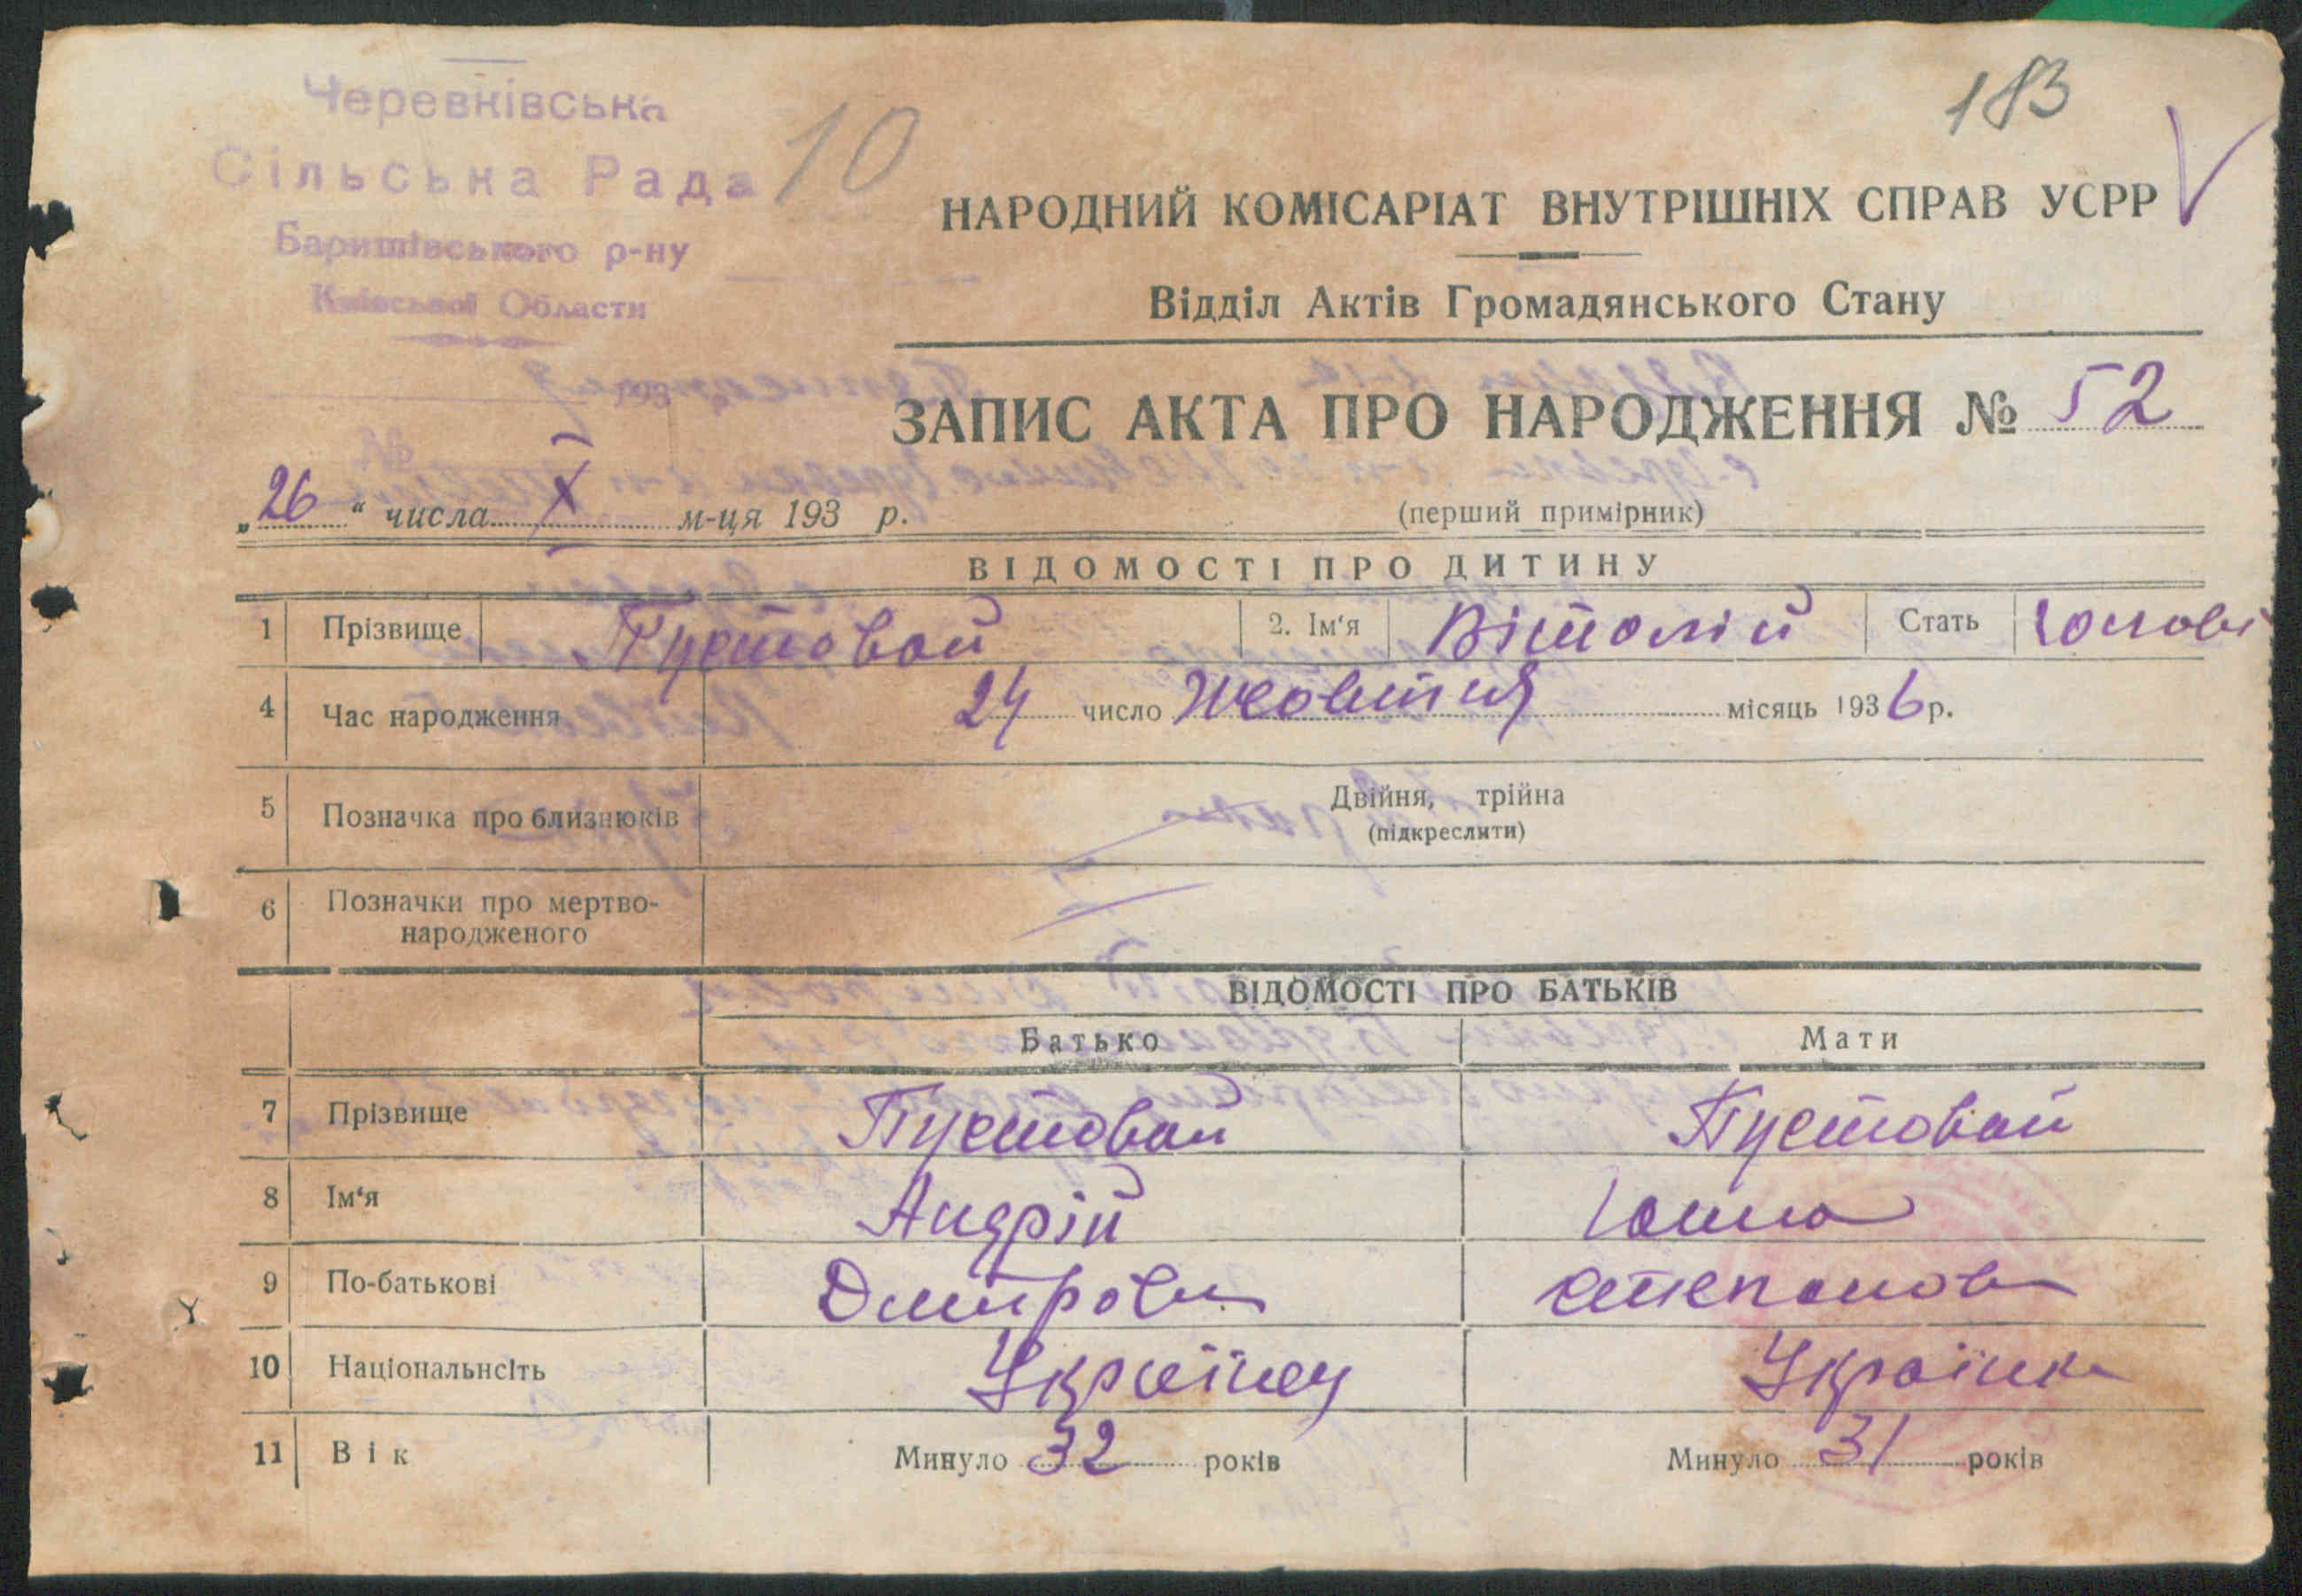 183
Черевківська
10
Сільська Рада
Баришівського р-ну
Київської Области
НАРОДНИЙ КОМІСАРІАТ ВНУТРІШНІХ СПРАВ УСРР
Відділ Актів Громадянського Стану
ЗАПИС АКТА ПРО НАРОДЖЕННЯ № 52
„26“ числа X м-ця 193 р.
(перший примірник)
ВІДОМОСТІ ПРО ДИТИНУ
1 Прізвище Пустовой 2. Ім‘я Віталій Стать чолові
4 Час народження 24 число Жовтня місяць 1936 р.
5 Позначка про близнюків Двійня, трійна
(підкреслити)
6 Позначки про мертво-
народженого
ВІДОМОСТІ ПРО БАТЬКІВ
Батько Мати
7 Прізвище Пустовой Пустовай
8 Ім‘я Андрій
9 По-батькові Дмитрови Степанов
10 Національнсіть Українец Українка
11 Вік Минуло 32 років Минуло 31 років